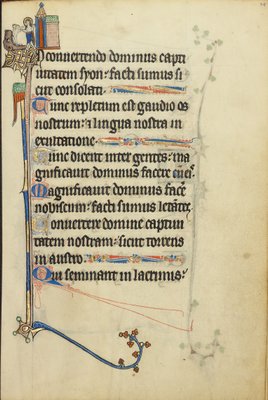 In convertendo dominus capti
uitatem syon: facti sumus si
cut consolati.
Tunc repletum est gaudio os
nostrum: et lingua nostra in
exultatione.
Tunc dicent inter gentes: ma
gnificauit dominus facere cum eis.
Magnificauit dominus facere
nobiscum: facti sumus letantes.
Conuertere domine captiui
tatem nostram: sicut torrens
in austro.
Qui seminant in lacrimis: